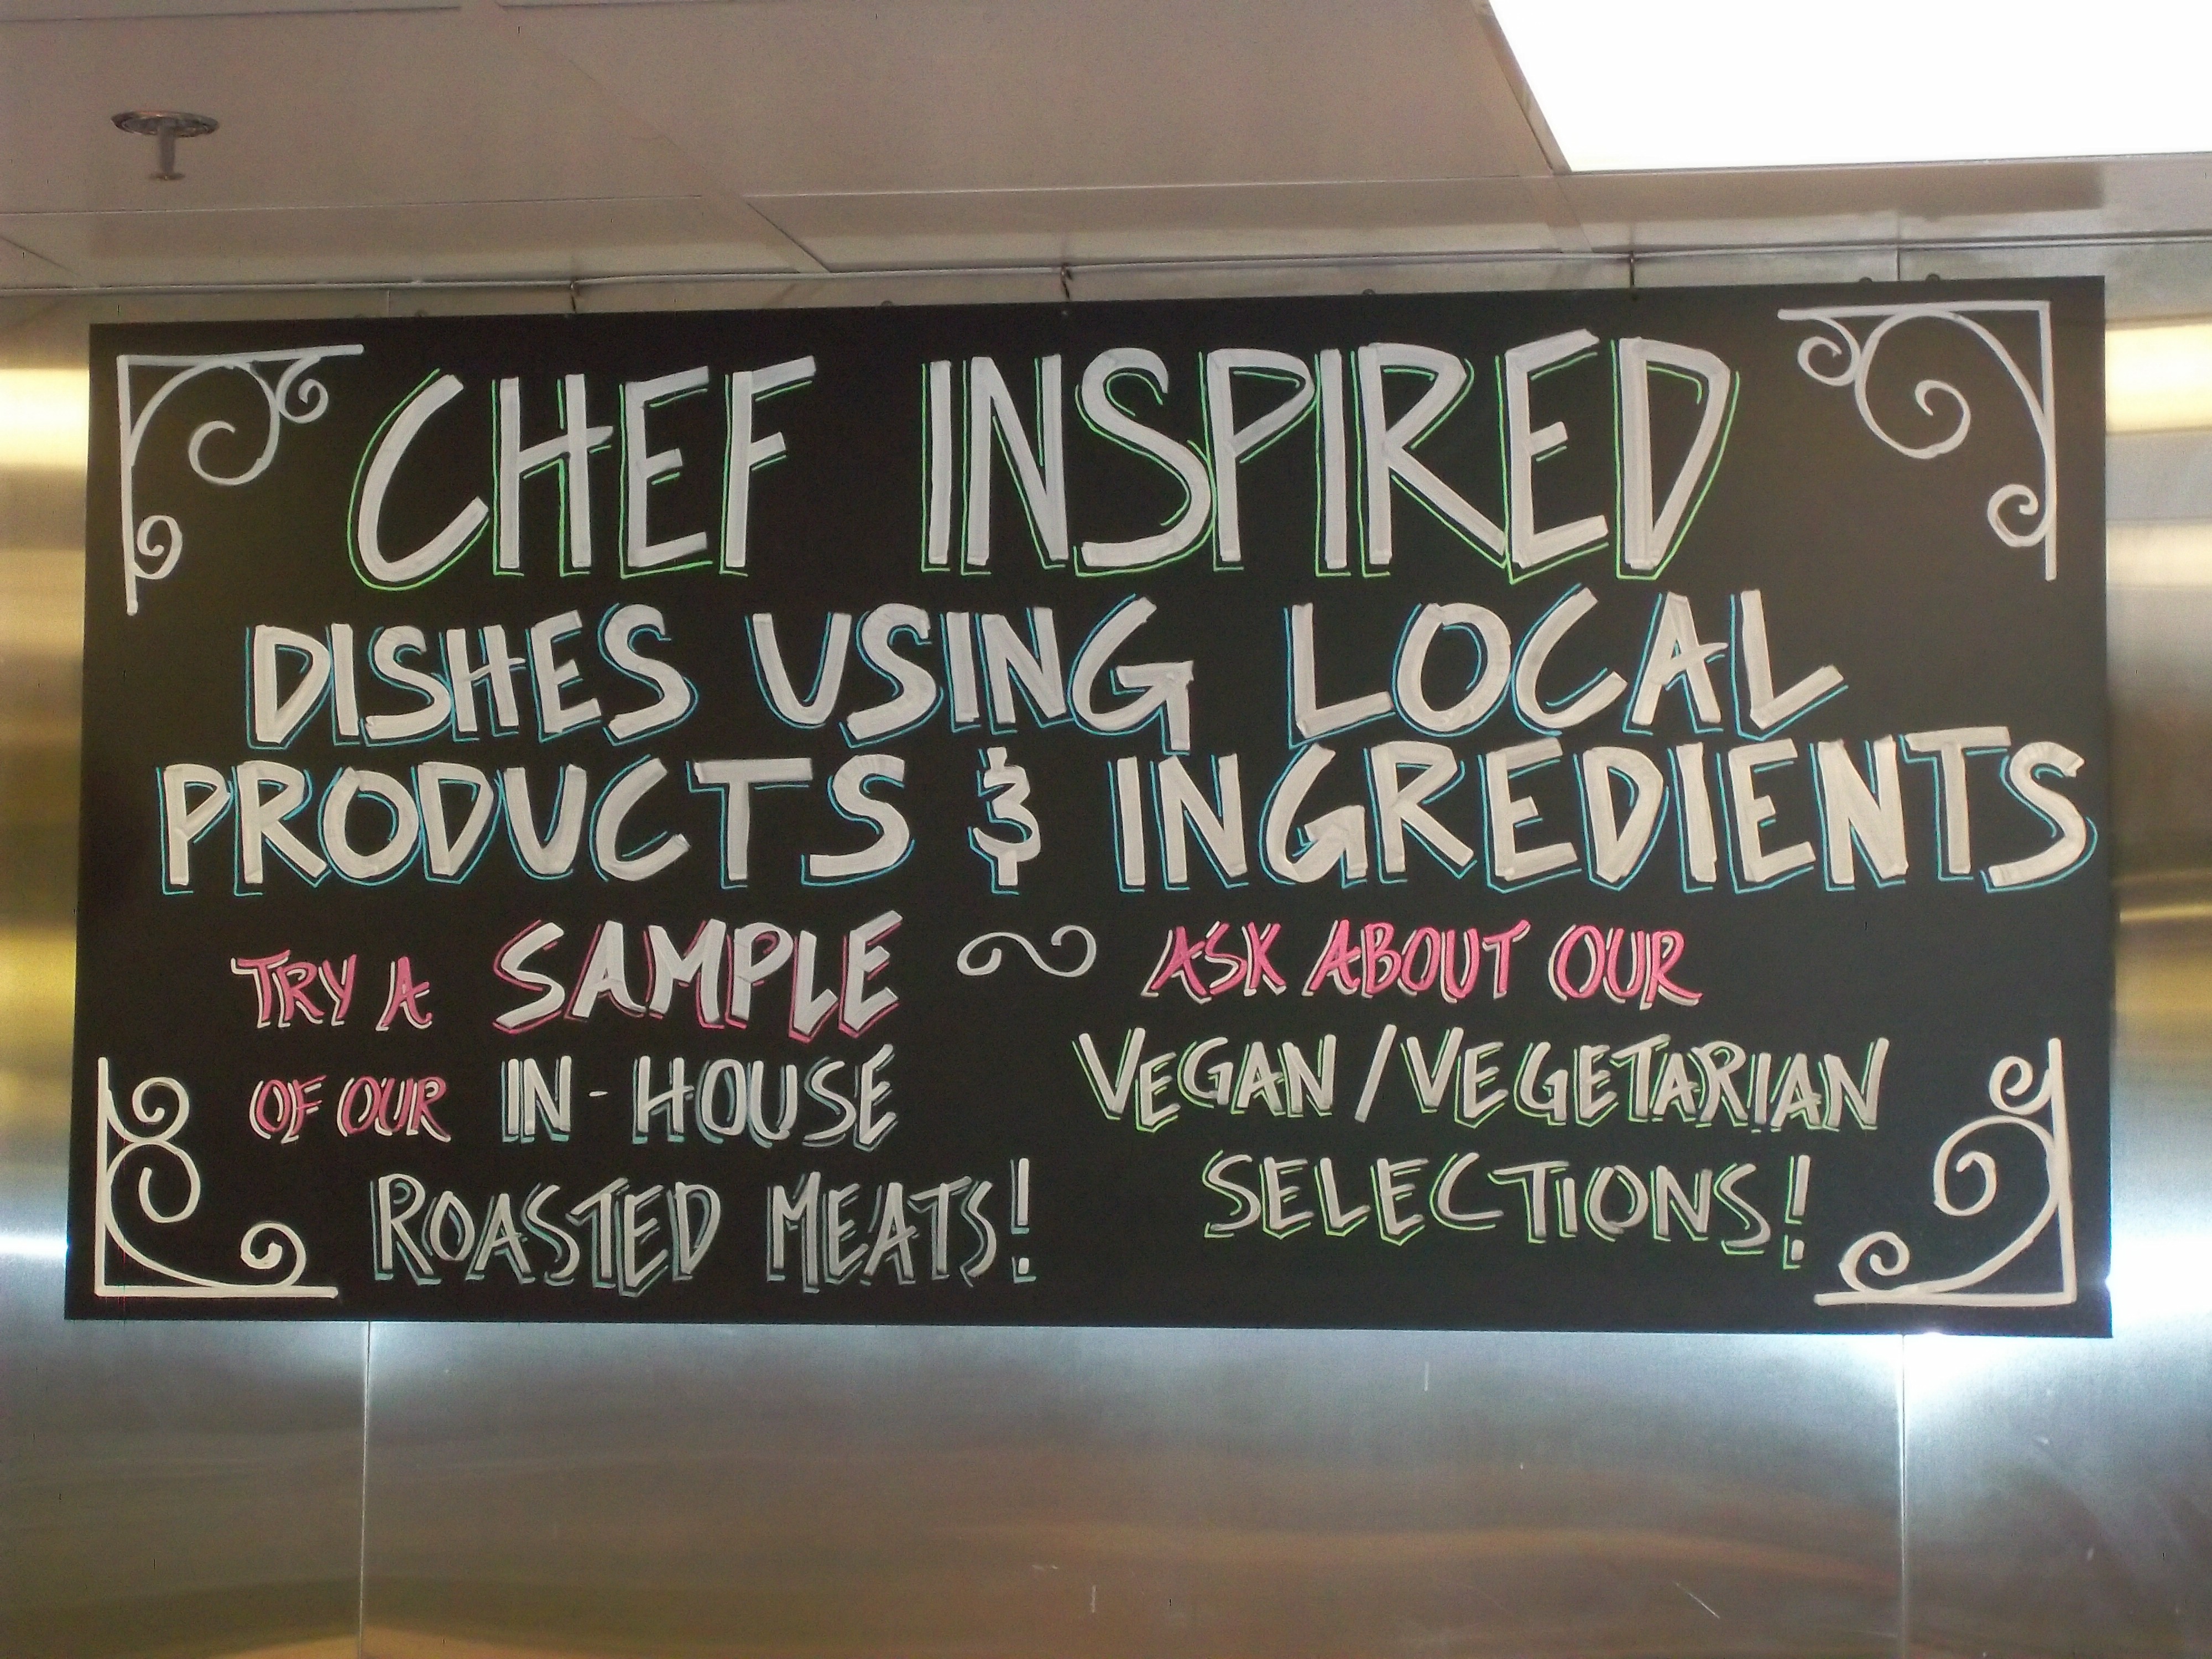 CHEF INSPIRED
DISHES USING LOCAL
PRODUCTS & INGREDIENTS
TRY A SAMPLE
OF OUR IN-HOUSE
ROASTED MEATS!
ASK ABOUT OUR
VEGAN/VEGETARIAN
SELECTIONS!